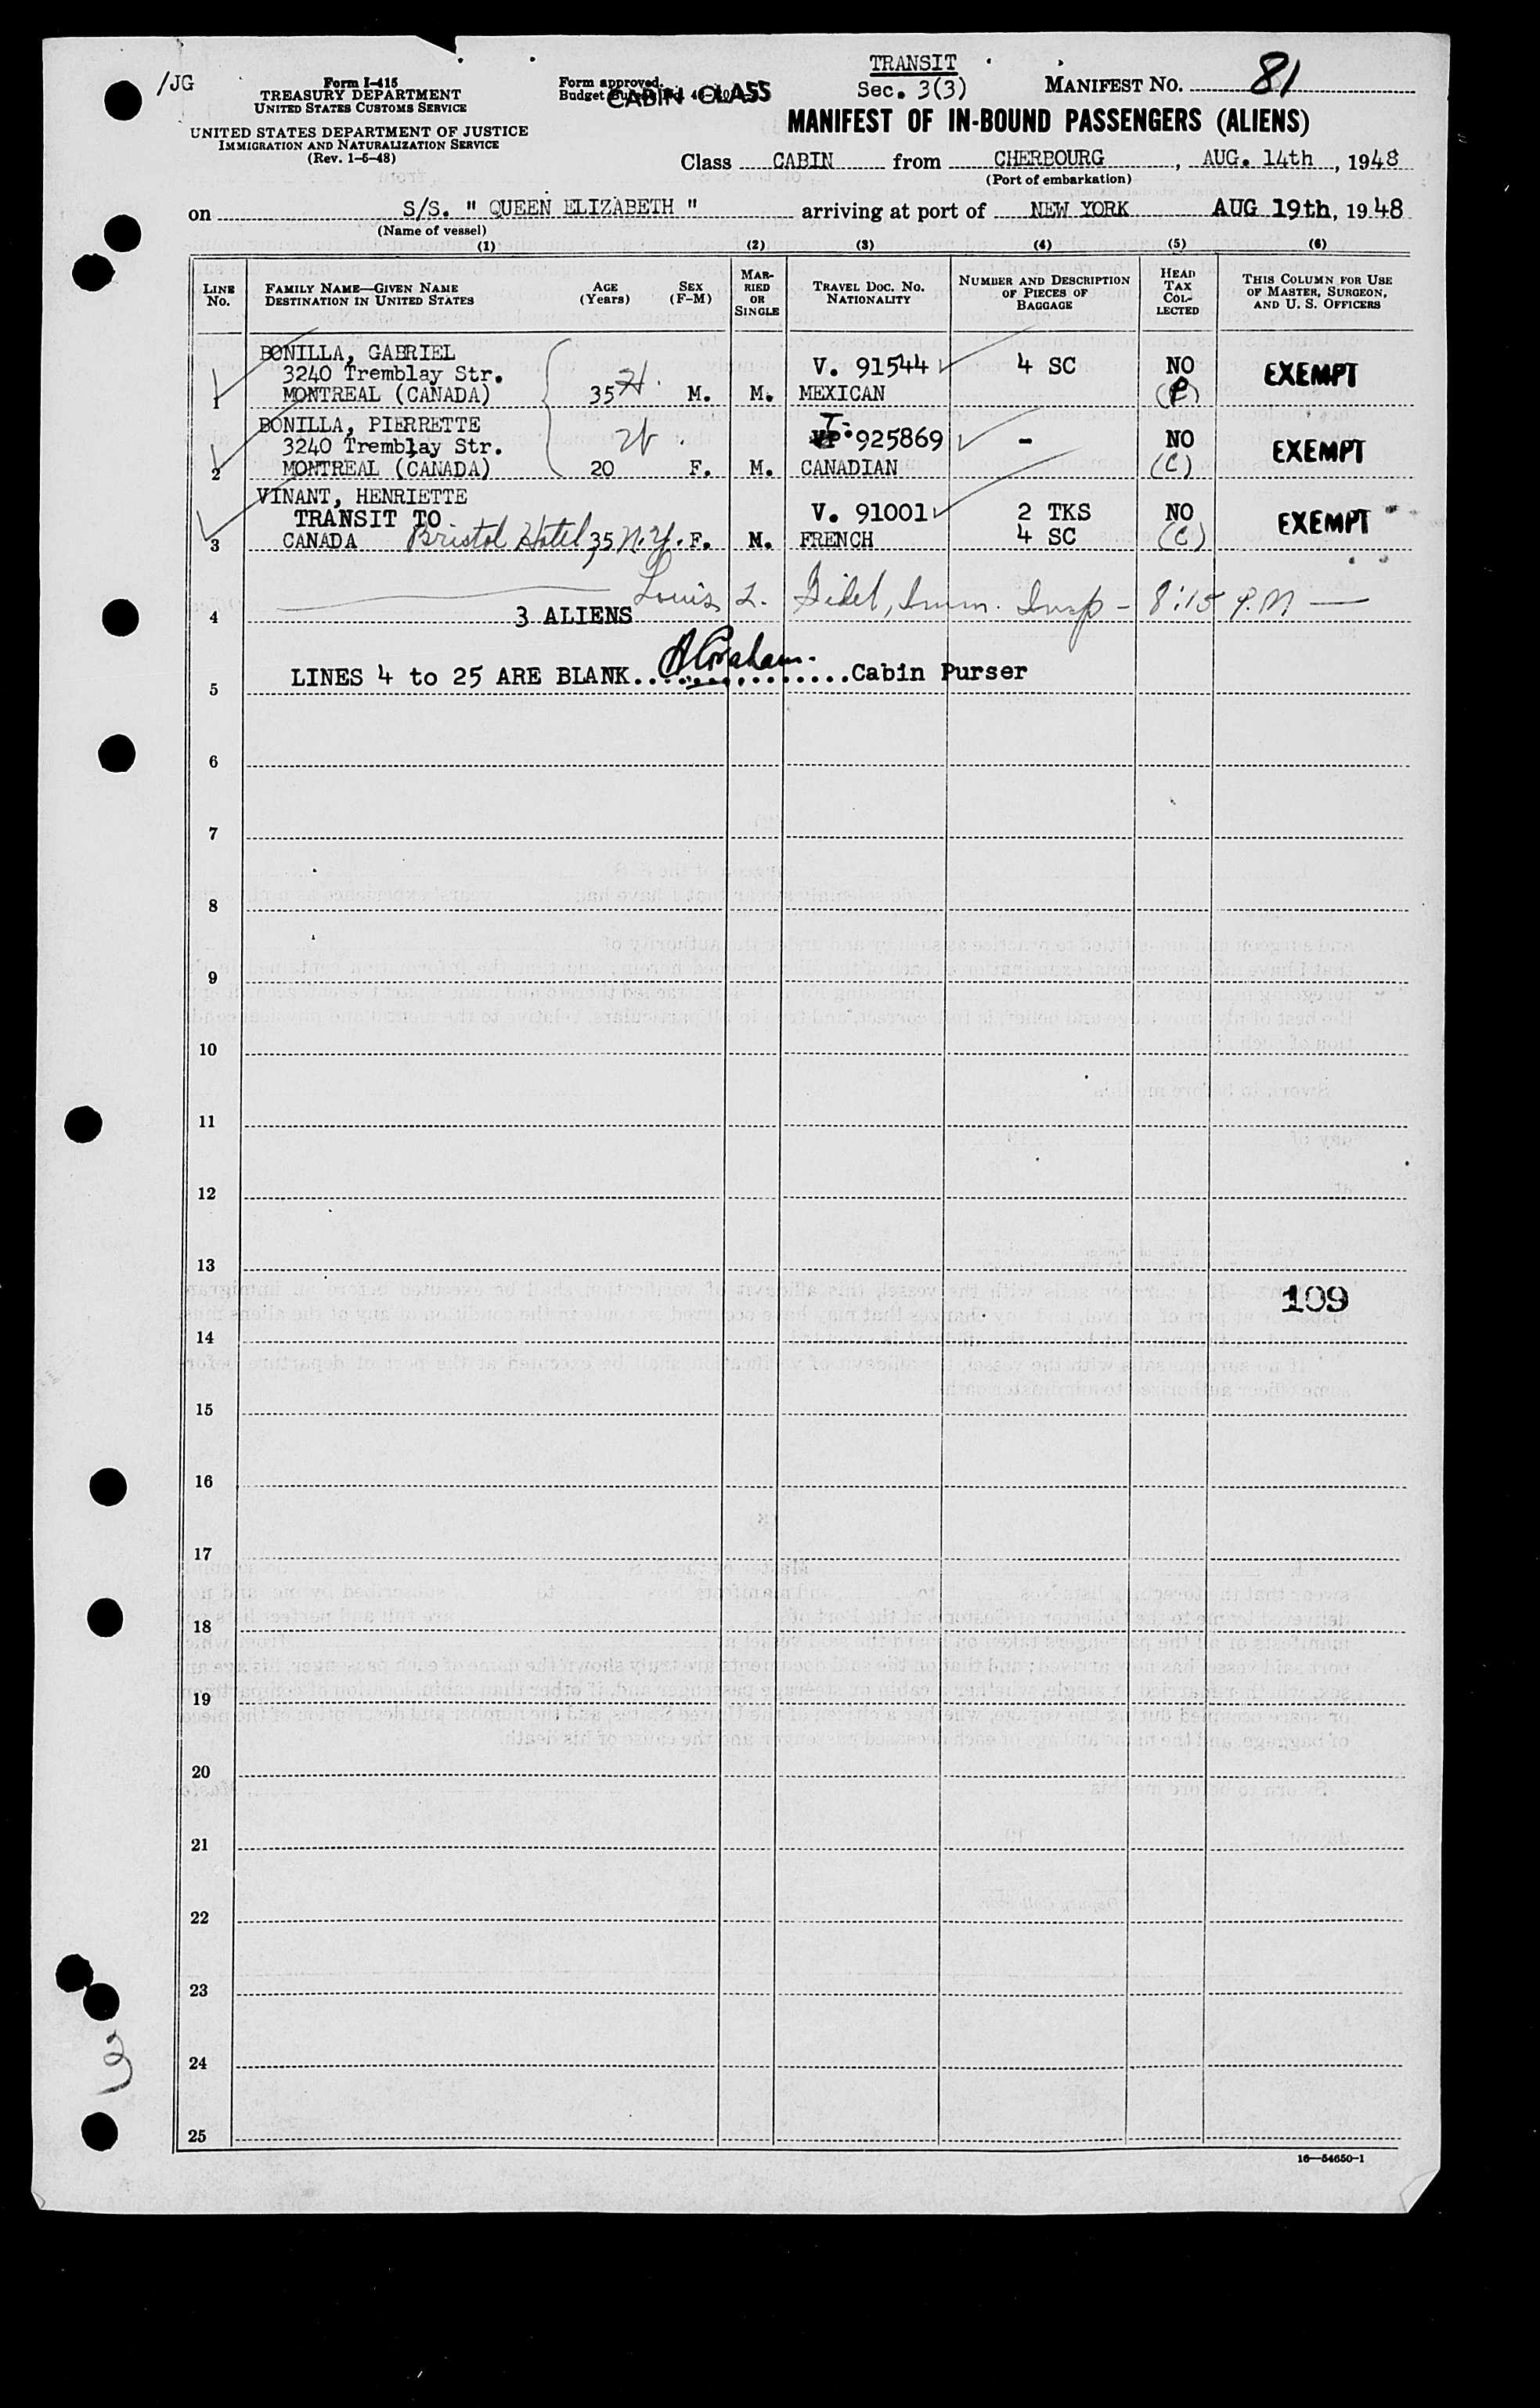 /JG
Form I-415
TREASURY DEPARTMENT
UNITED STATES CUSTOMS SERVICE
UNITED STATES DEPARTMENT OF JUSTICE
IMMIGRATION AND NATURALIZATION SERVICE
(Rev. 1-5-48)
Form approved.
Budget
CABIN CLASS
TRANSIT
Sec. 3(3)
MANIFEST NO. 81
MANIFEST OF IN-BOUND PASSENGERS (ALIENS)
Class CABIN from CHERBOURG, AUG. 14th, 1948
(Port of embarkation)
on S/S. " QUEEN ELIZABETH " arriving at port of NEW YORK AUG 19th, 1948
(Name of vessel)
(1) (2) (3) (4) (5) (6)
LINE No.
FAMILY NAME—GIVEN NAME
DESTINATION IN UNITED STATES
AGE
(Years)
SEX
(F-M)
MAR-
RIED
OR
SINGLE
TRAVEL DOC. NO.
NATIONALITY
NUMBER AND DESCRIPTION
OF PIECES OF
BAGGAGE
HEAD
TAX
COL-
LECTED
THIS COLUMN FOR USE
OF MASTER, SURGEON,
AND U. S. OFFICERS
BONILLA, GABRIEL
3240 Tremblay Str. V. 91544 4 SC NO EXEMPT
1 MONTREAL (CANADA) 35 H. M. M. MEXICAN
BONILLA, PIERRETTE
3240 Tremblay Str. W. T. 925869 - NO EXEMPT
2 MONTREAL (CANADA) 20 F. M. CANADIAN (C)
VINANT, HENRIETTE
TRANSIT TO V. 91001 2 TKS NO EXEMPT
3 CANADA Bristol Hotel, N.Y. 35 F. M. FRENCH 4 SC (C)
Louis L. Imm. Insp - 8:15 P.M —
4 3 ALIENS
LINES 4 to 25 ARE BLANK...............Cabin Purser
5
6
7
8
9
10
11
12
13
109
14
15
16
17
18
19
20
21
22
23
24
25
16—54650-1